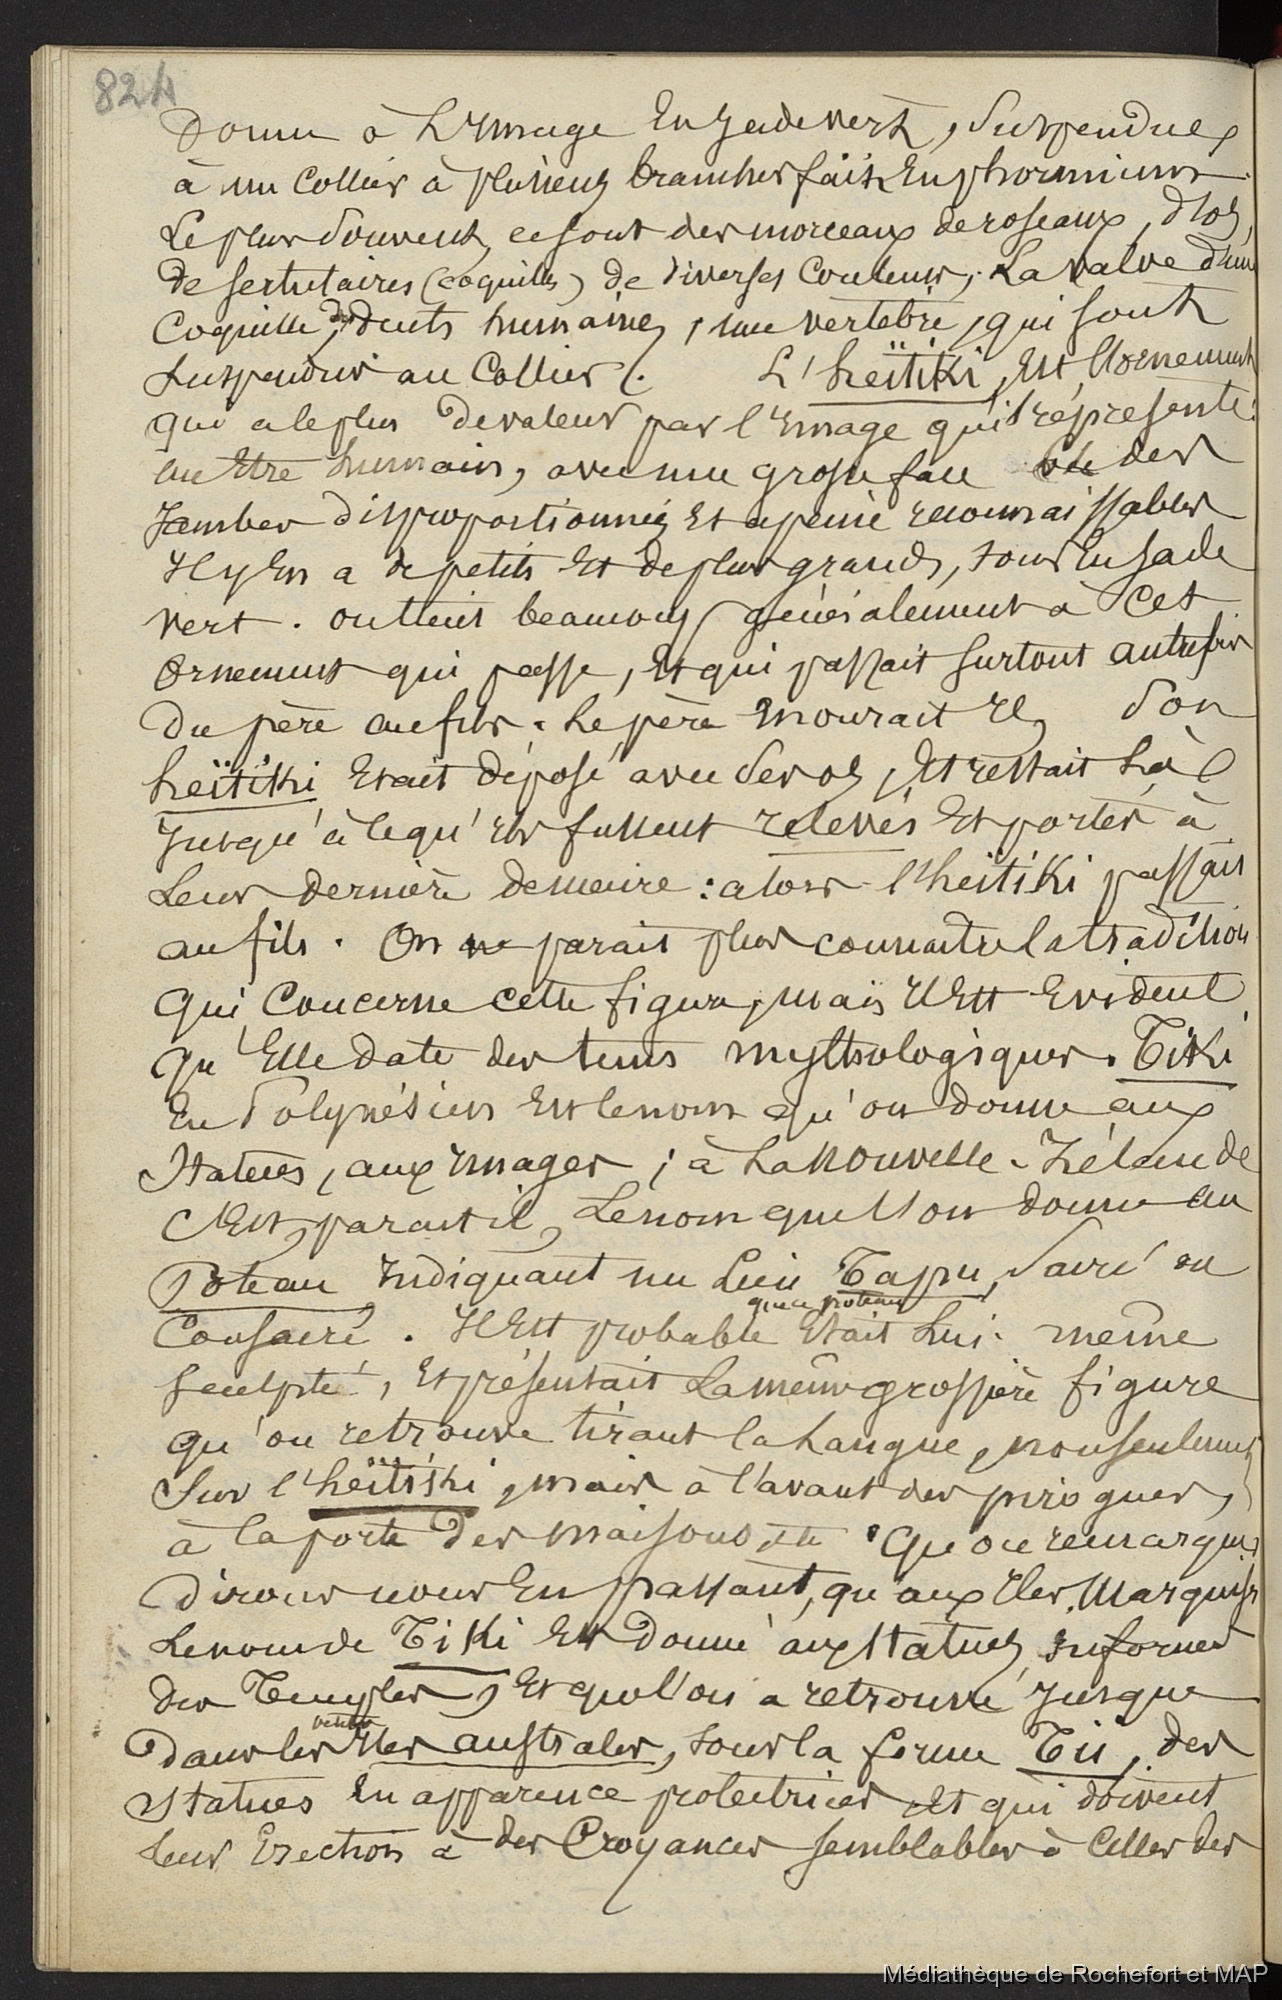 824
Donné à L'Image En Jade vert, Suspendue
à un Collier à plusieurs branches fait En phormium
Le plus Souvent, ce sont des morceaux de roseaux, d'os,
de sertulaires (coquilles) de diverses Couleurs, La valve d'une
Coquille, des dents humaines, une vertèbre, qui sont
Suspendus au Collier. L'heïtiki, Est l'ornement
qui a le plus de valeur par l'Image qu'il représente:
un Etre humain, avec une grosse face et des
Jambes disproportionnées Et à peine reconnaissables
Il y En a de petits Et de plus grands, tous En Jade
vert. on tient beaucoup généralement à Cet
Ornement qui passe, Et qui passait surtout autrefois
Du père au fils. Le père mourait il, Son
heïtiki Etait déposé avec Ses os, Et restait Là
Jusqu'à ce qu'Ils fussent relevés Et portés à
Leur dernière demeure: alors l'heïtiki passait
au fils. On ne parait plus connaitre la tradition
qui Concerne cette figure, mais il Est Evident
qu'Elle date des tems mythologiques. Tiki
En Polynésien Est le nom qu'on donne aux
Statues, aux Images; à La Nouvelle-Zélande
C'Est, parait il, Le nom que l'on donne au
Poteau Indiquant un Lieu Tapu, Sacré ou
que ce poteau
Consacré. Il Est probable Etait Lui-même
Sculpté, Et présentait La même grossière figure
qu'on retrouve tirant la Langue, non seulement
Sur l'heïtiki, mais à l'avant des pirogues,
à la porte Des maisons, etc. Qu'on remarque
dirons nous En passant, qu'aux Iles Marquises
Le nom de Tiki Est Donné aux Statues informes
des Temples, Et que l'on a retrouvé Jusque
dans les Iles australes, sous la forme Tii, des
Statues En apparence protectrices Et qui doivent
Leur Erection à des Croyances semblables à Celles des
Médiathèque de Rochefort et MAP